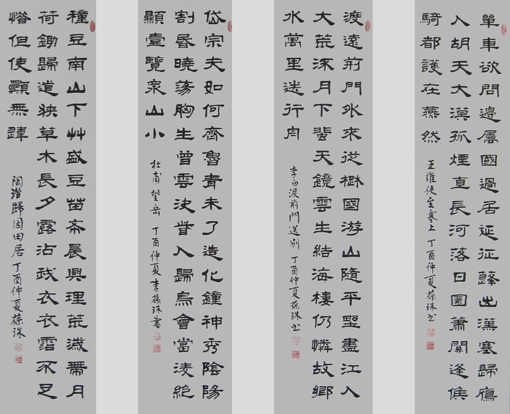 單車欲問邊屬國過居延征蓬出漢塞歸雁
入胡天大漠孤煙直長河落日圓蕭關逢候
騎都護在燕然
王維使至塞上 丁酉仲夏葆珠书
渡遠荊門外來從楚國遊山隨平野盡江入
大荒流月下飛天鏡雲生結海樓仍憐故鄉
水萬里送行舟
李白渡荊門送別 丁酉仲夏葆珠书
岱宗夫如何齊魯青未了造化鐘神秀陰陽
割昏曉蕩胸生曾雲決眥入歸鳥會當淩絕
顛壹覽眾山小
杜甫望岳 丁酉仲夏李葆珠書
種豆南山下艸盛豆苗希晨興理荒穢帶月
荷鋤歸道狹草木長夕露沾我衣衣霑不足
惜但使願無違
陶潛歸園田居 丁酉仲夏葆珠